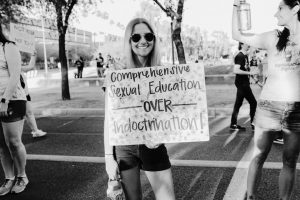 Comprehensive
Sexual Education
OVER
Indoctrination!